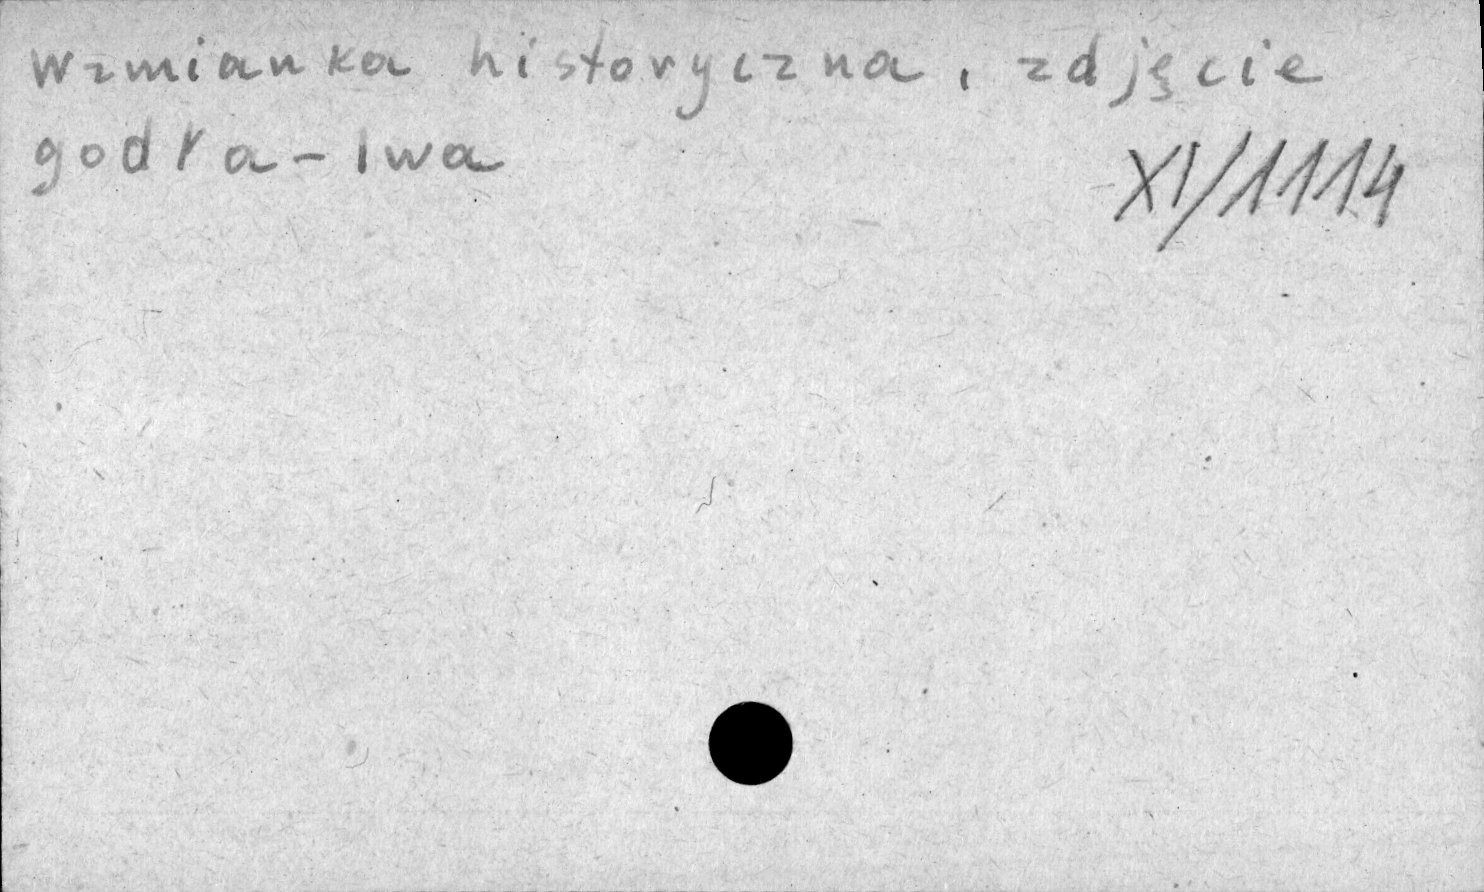 wzmianka historyczna, zdjęcie
godła - lwa
XI/1114